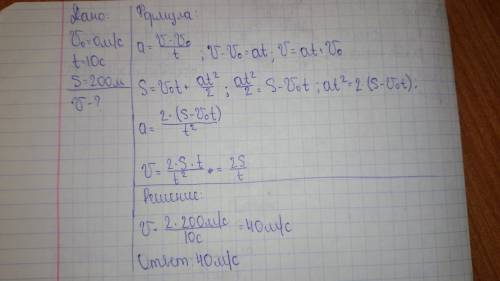 Дано:
V₀=0м/с
t=10с
S=200м
V-?
Формула:
a=(V-V₀)/t ; V-V₀=at; V=at+V₀
S=V₀t+at²/2 ; at²/2=S-V₀t; at²=2(S-V₀t):
a=2·(S-V₀t)/t²
V=2·S·t/t² = 2S/t
Решение:
V=2·200м/с/10с=40м/с
Ответ: 40м/с